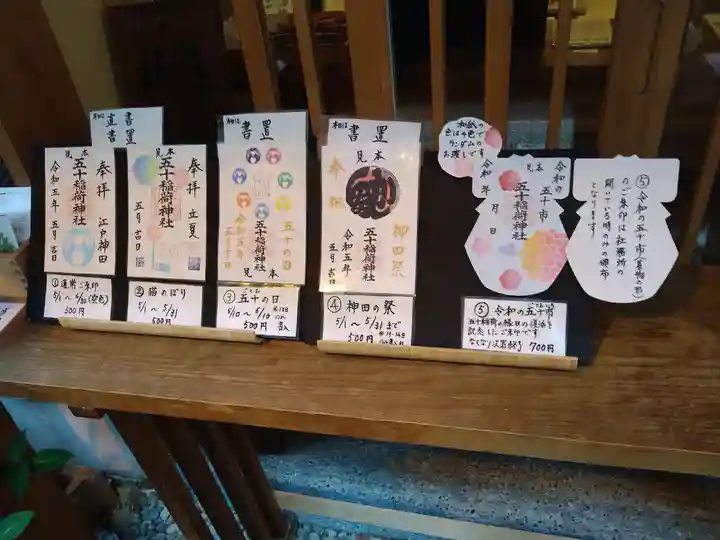 直書
書置
見本
奉拝
江戸神田
五十稲荷神社
令和五年
五月吉日
見本
奉拝
立夏
五十稲荷神社
五月吉日
書置
五十の日
五十稲荷神社
令和五年
五月十日
見本
書置
見本
奉拝
神田祭
五十稲荷神社
令和五年
五月吉日
和紙の
色は4色で
ランダムの
お渡しです
令和の
見本
五十市
五十稲荷神社
令和 年 月 日
⑤令和の五十市(着物の形)
のご朱印は社務所の
開いている時のみの頒布
となります!
①通常ご朱印
500円
②猫のぼり
5/1〜5/31
500円
③五十の日
500円
④神田の祭
5/1〜5/31まで
500円
⑤令和の五十市
五十稲荷の縁日の復活を
記念したご朱印です
なくなり次第終了 700円